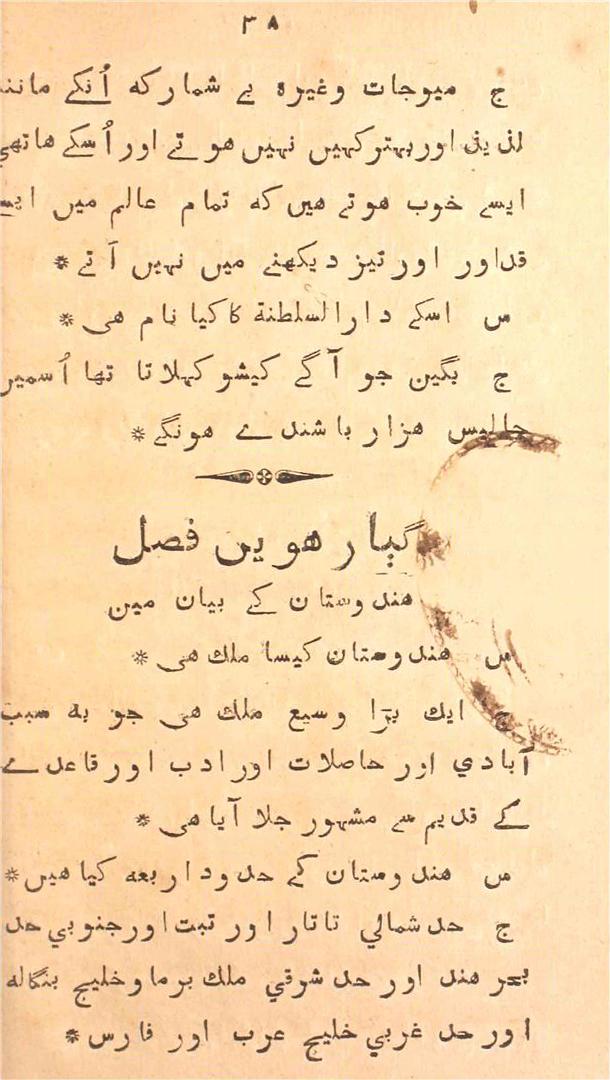 ٣٨
ج میوجات وغیرہ بے شمار کہ اُنکے مانند
لذیذ اور بہتر کہیں نہیں ہوتے اور اُسکے ہاتھی
ایسے خوب ہوتے ہیں کہ تمام عالم میں ایسے
قداور اور تیز دیکھنے میں نہیں آتے *
س اسکے دارالسلطنة کا کیا نام ہی *
ج بگین جو آگے کیشو کہلاتا تھا اُسمیں
چالیس ہزار باشندے ہونگے *
گیارھویں فصل
ہندوستان کے بیان مین
س ہندوستان کیسا ملک ہی *
ج ایک بڑا وسیع ملک ہی جو بہ سبب
آبادي اور حاصلات اور ادب اور قاعدے
کے قدیم سے مشہور چلا آیا ہی *
س ہندوستان کے حدود اربعہ کیا ہیں *
ج حد شمالي تاتار اور تبت اور جنوبي حد
بحر ہند اور حد شرقي ملك برما و خلیج بنگالہ
اور حد غربي خلیج عرب اور فارس *